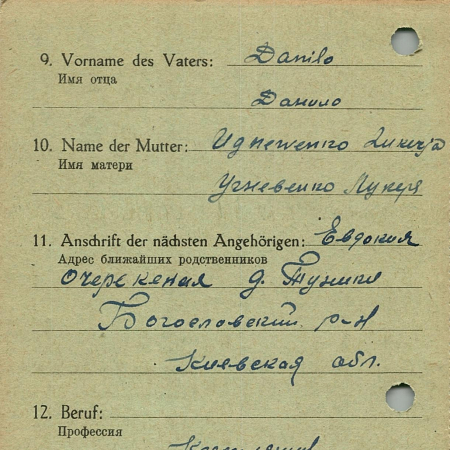 9. Vorname des Vaters: Danilo
Имя отца
Данило
10. Name der Mutter:
Имя матери
11. Anschrift der nächsten Angehörigen: Евдокия
Адрес ближайших родственников
д.
Богословский р-н
Киевская обл.
12. Beruf:
Профессия